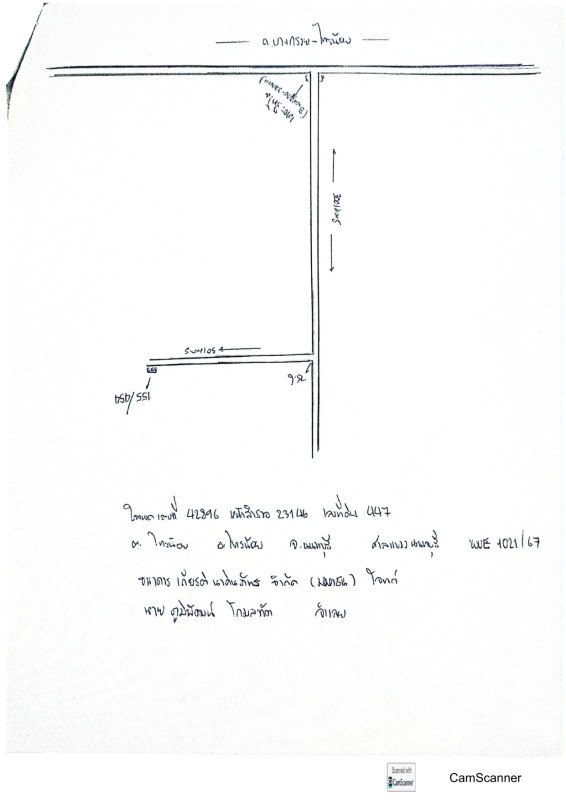 ถ.บางกรวย-ไทรน้อย
300 เมตร
50 เมตร
ซ.6
155/454
โฉนดเลขที่ 42896 หน้าสำรวจ 23146 เลขที่ดิน 447
ต. ไทรน้อย อ.ไทรน้อย จ.นนทบุรี ศาลแขวงนนทบุรี ผบE 1021/67
ธนาคาร เกียรตินาคินภัทร จำกัด (มหาชน) โจทก์
นาย ภูมิพัฒน์ โกมลทัต จำเลย
Scanned with
CamScanner
CamScanner